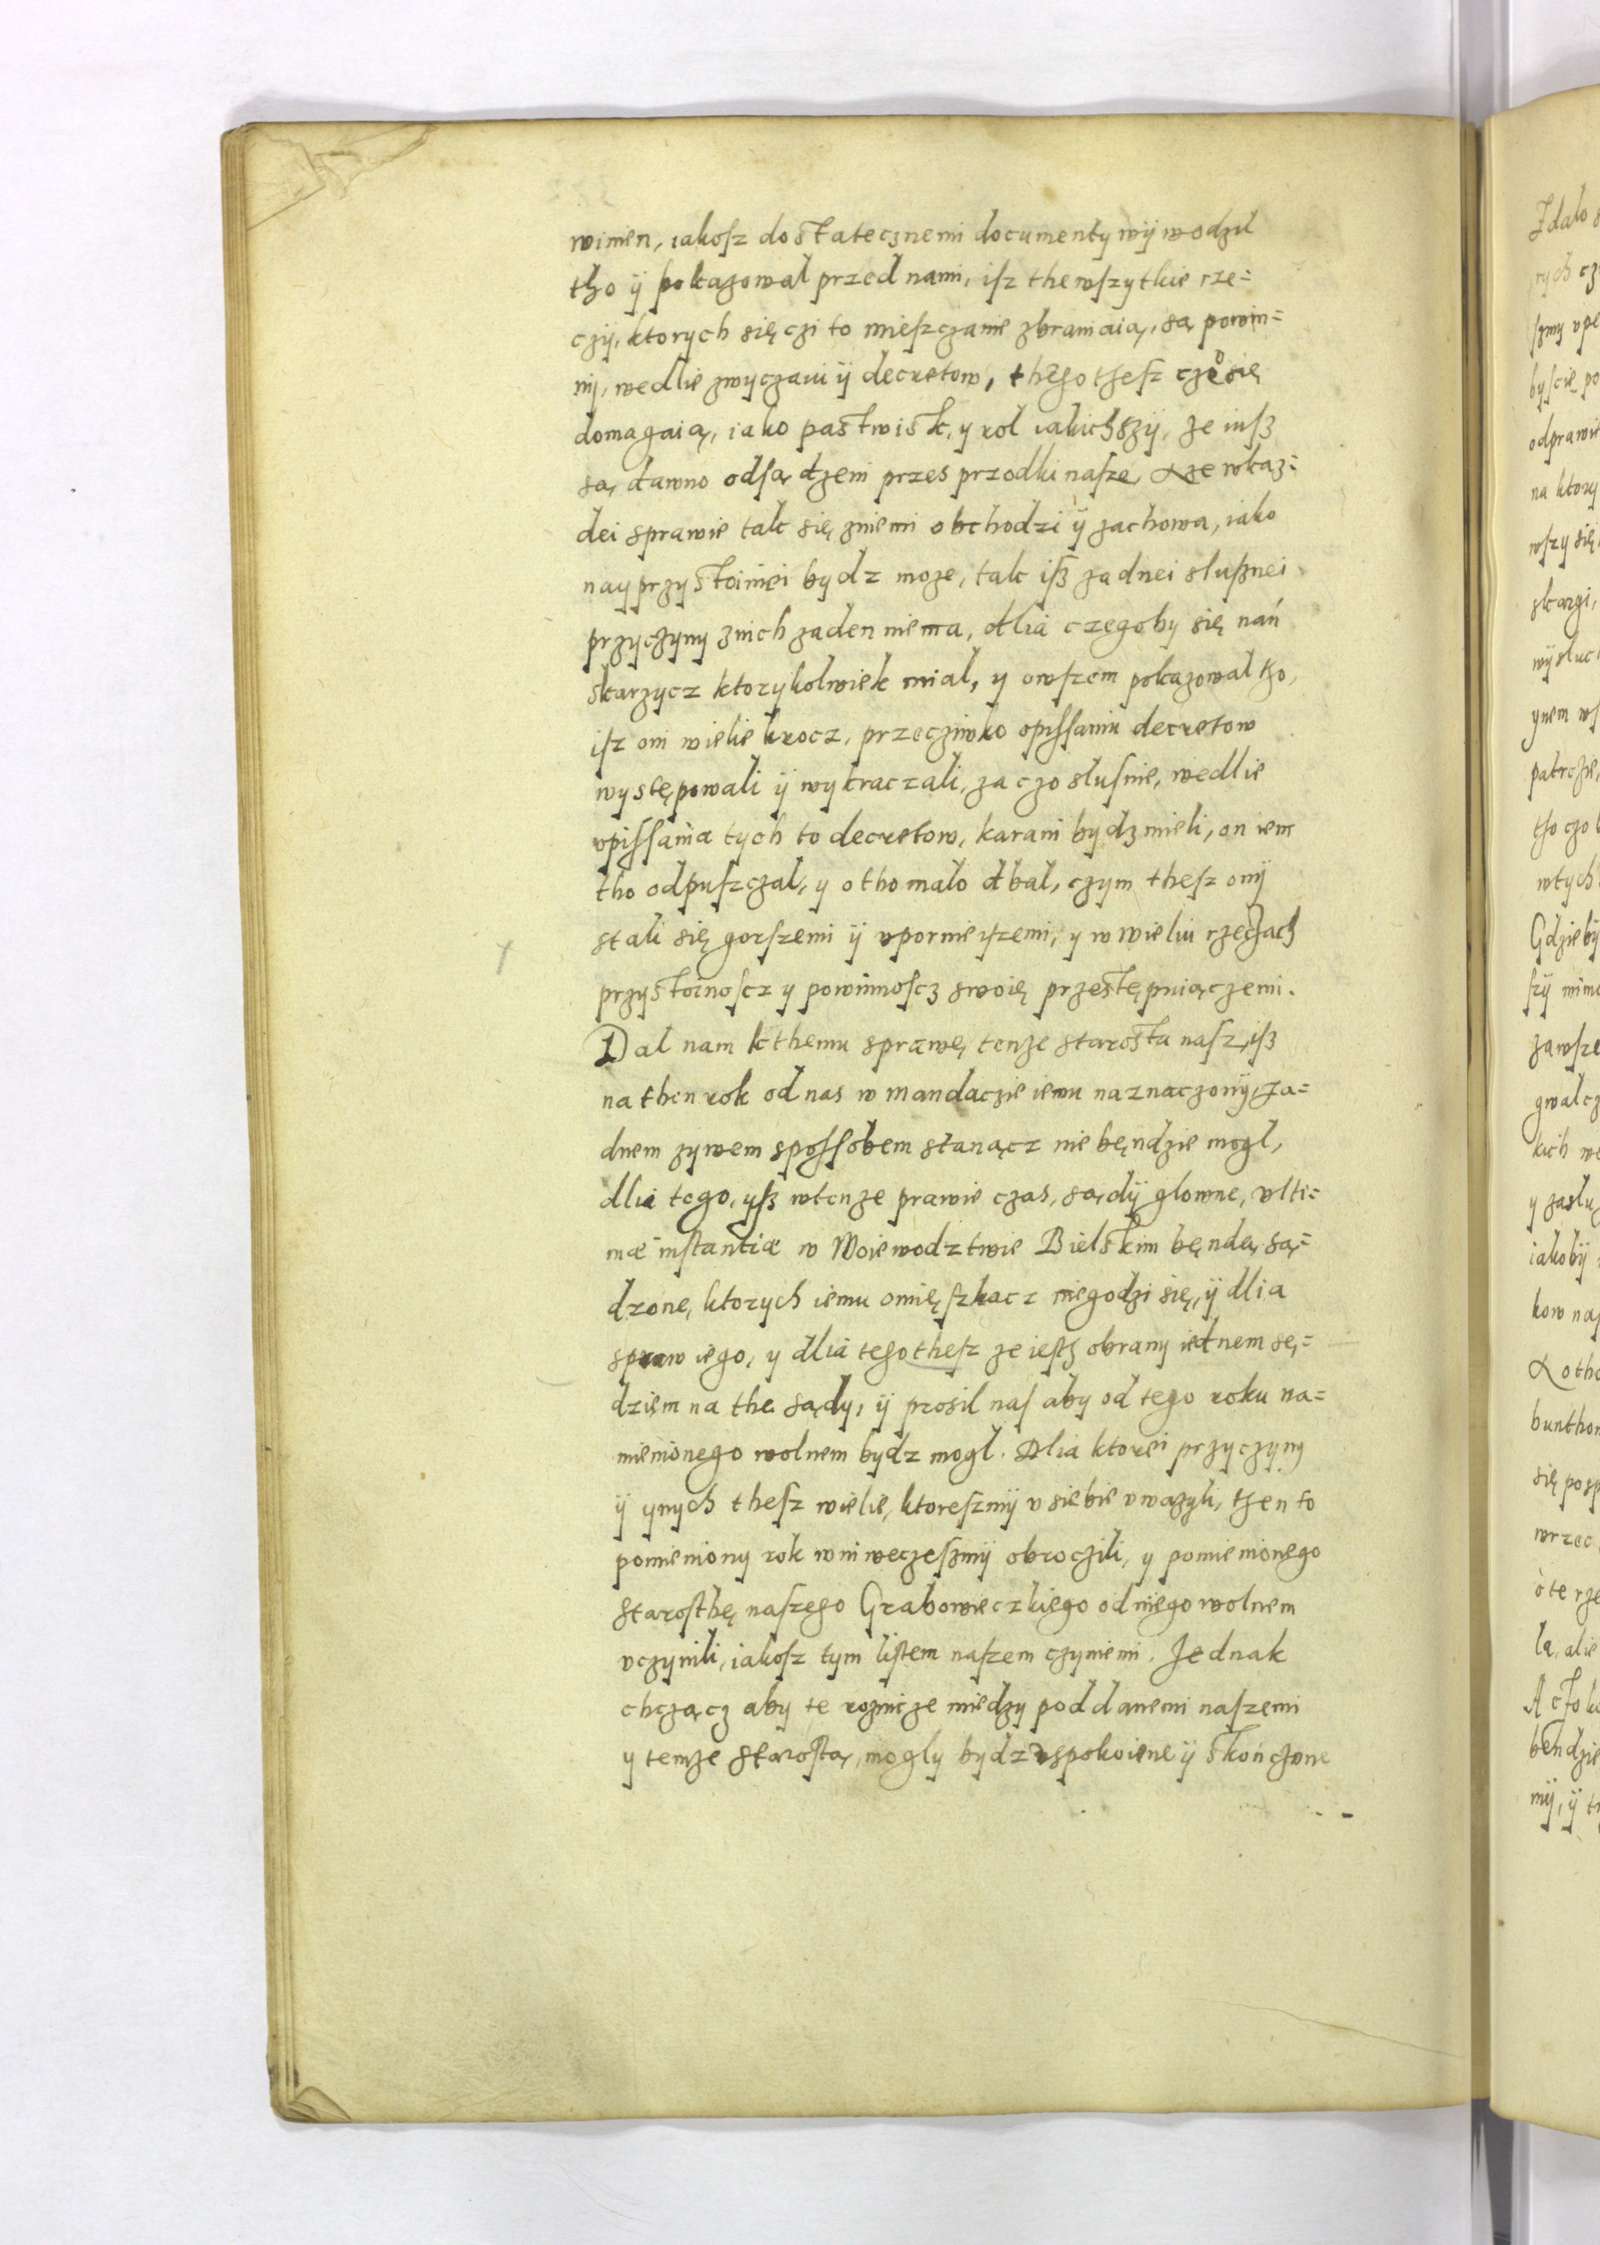 winien, iakosz dostatecznemi documenty wÿwodził
tho ÿ pokazowal przed nami, isz the wszytkie rze=
czÿ, ktorych się czi to mieszczanie zbraniaią, są powin=
nÿ, wedlie zwyczaiu ÿ decretow, thego thesz czo się
domagaią, iako pastwisk, y rol iakichszÿ, że iusz
są dawno odsądzeni przes przodki nasze, & że w każ=
dei sprawie tak się zniemi obchodzi ÿ zachowa, iako
nayprzystoiniei bydz może, tak isz zadnei slusznei
przyczyny znich zaden niema, dlia czegoby się nań
skarzycz ktorykolwiek mial, y owszem pokazowal tho,
isz oni wieliekrocz, przecziwko opissaniu decretow
występowali ÿ wykraczali, za czo slusnie, wedlie
opissania tych to decretow, karani bydz mieli, on iem
tho odpuszczal, y otho malo dbal, czym thesz onÿ
stali się gorszemi ÿ uporniejszemi, y w wieliu rzeczach
przystoinoscz y powinnoscz swoię przestępuiączemi.
Dal nam kthemu sprawę tenze starosta nasz, isz
na then rok od nas w mandaczie iemu naznaczonÿ, ża=
dnem zywem spossobem stanącz nie bęndzie mogl,
dlia tego, ysz wtenze prawie czas, sądÿ glowne, ulti=
mæ instantiæ w Woiewodztwie Bielskim bęndą są=
dzone, ktorych iemu omięszkacz niegodzi się, ÿ dlia
spraw iego, y dlia tego thesz ze iesth obrany iednem sę=
dziem na the sądy, ÿ prosil nas aby od tego roku na=
mienionego wolnem bydz mogl. Dlia ktorei przyczyny
ÿ ynych thesz wielie, ktoreszmÿ u siebie uwazyli, then to
pomieniony rok wniweczeszmÿ obroczili, y pomienionego
starosthę naszego Grabowieczkiego od niego wolnem
uczynili, iakosz tym listem naszem czyniemi. Jednak
chcząc aby te roznicze miedzy poddanemi naszemi
y temze starostą, mogly bydz uspokoiene ÿ skończone